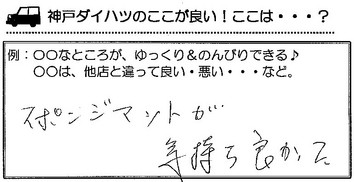 神戸ダイハツのここが良い！ここは・・・？
例：〇〇なところが、ゆっくり＆のんびりできる♪
〇〇は、他店と違って良い・悪い・・・など。
スポンジマットが
気持ち良かった